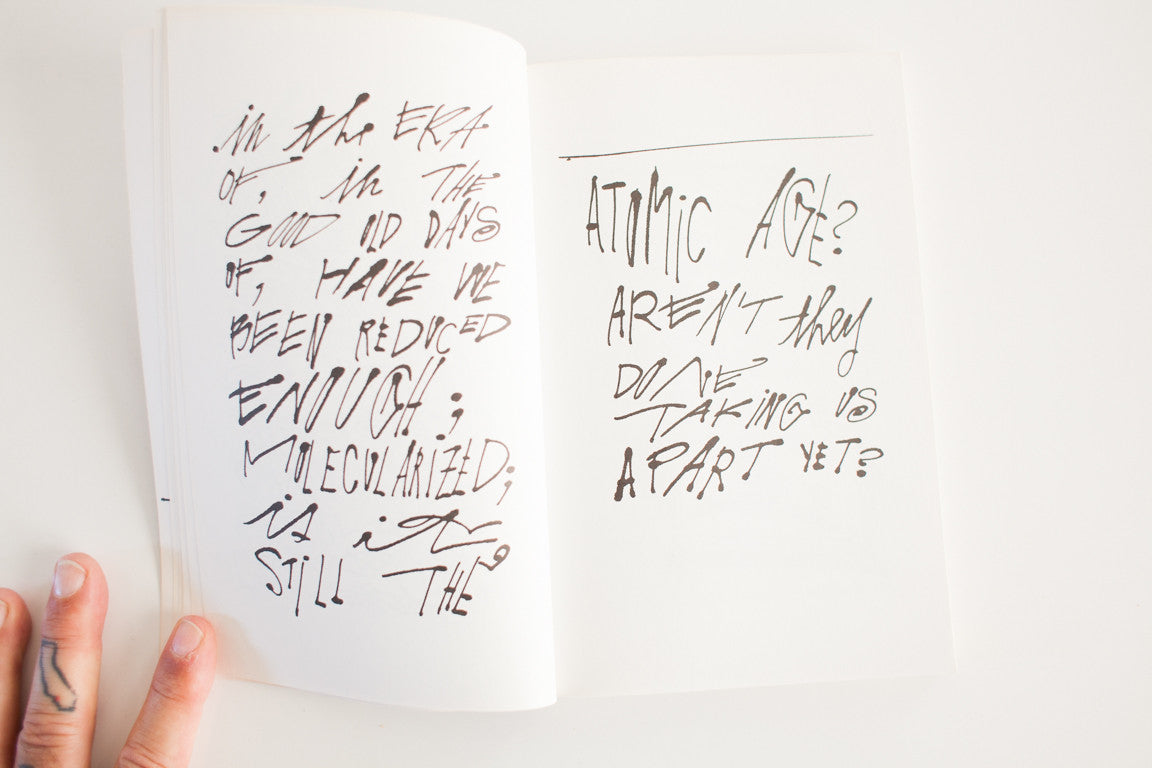 in the ERA
OF, in THE
GOOD OLD DAYS
OF, HAVE WE
BEEN REDUCED
ENOUGH;
MOLECULARIZED;
is it,
STILL THE
ATOMIC AGE?
AREN'T they
DONE
TAKING US
APART YET?